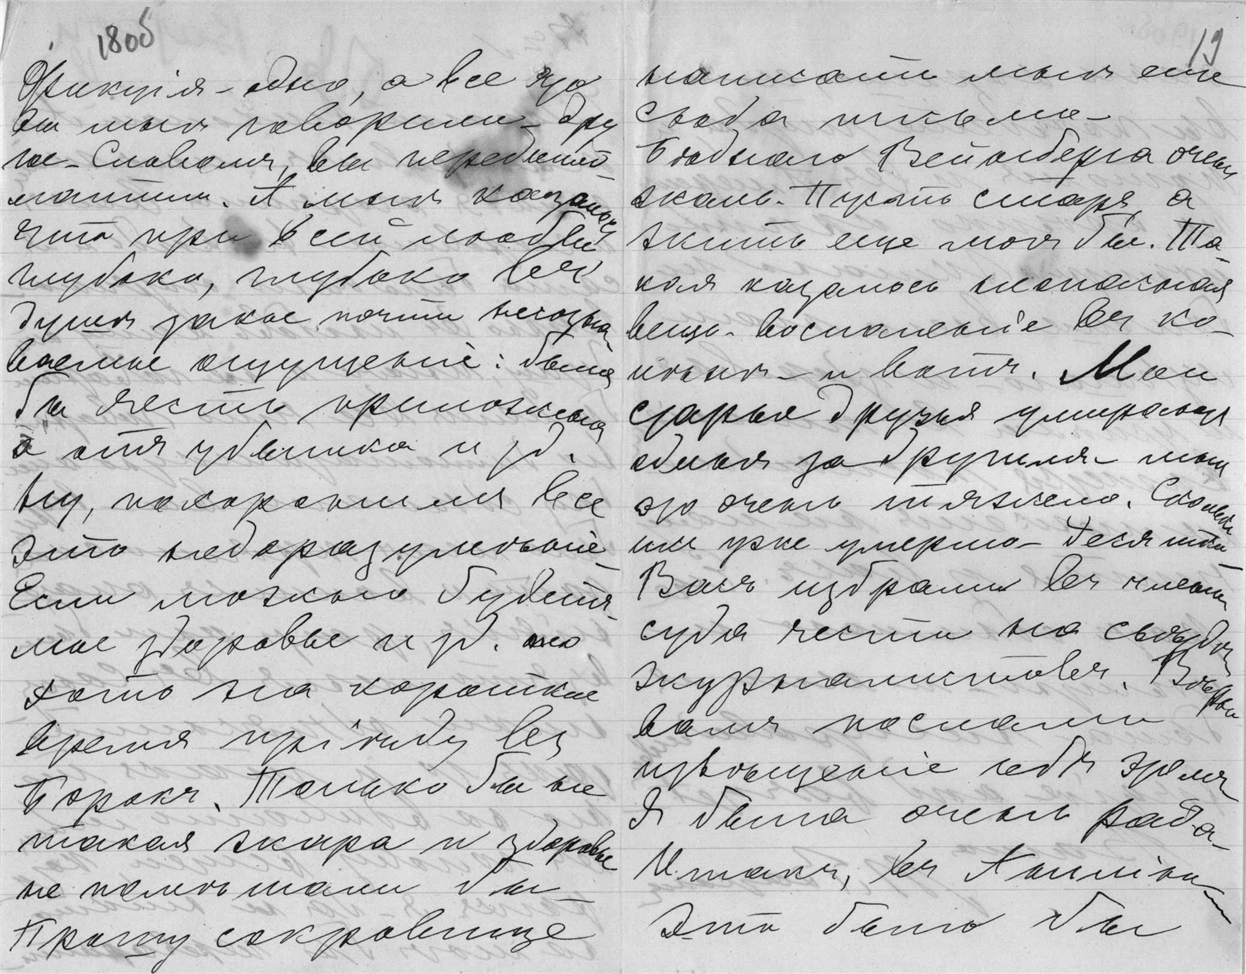 1808
Фикція - одно, а все что
вы мнѣ говорили - дру
гое - Словомъ, вы передумай
А мнѣ казалось
что при всей любви
глубоко, глубоко въ
душѣ такое почти несозна
ваемое ощущеніе: была
бы честь приложена
а отъ убытка и т.д.
Ну, похоронимъ все
это недоразумѣніе
Если можно будетъ
мое здоровье и т.д. но
хоть на короткое
время пріѣду въ
Борокъ. Только бы не
такая жара и здоровье
не помѣшали бы
Прошу сокровище
19
написать мнѣ еще
письма -
Бѣднаго Вейнберга очень
жаль. Пусть старъ, а
жить еще мог бы. Та
кая казалось неопасная
вещь - воспаленіе въ ко
и вотъ. Мои
старые друзья умираютъ
одинъ за другимъ - мнѣ
это очень тяжело. Сколько
ихъ уже умерло - Десятки
Васъ избрали въ члены
суда чести на съѣздѣ
журналистовъ. Вчера
вамъ послали
извѣщеніе объ этомъ
Я была очень рада -
Итакъ, въ
Это было бы